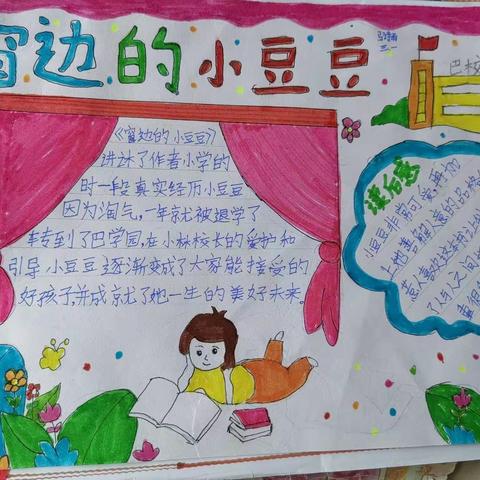 窗边的小豆豆
三.一
巴校
《窗边的小豆豆》
讲述了作者小学的
时一段真实经历小豆豆
因为淘气,一年就被退学了
转到了巴学园,在小林校长的爱护和
引导,小豆豆逐渐变成了大家能接受的
好孩子,并成就了她一生的美好未来。
读后感
小豆豆非常可爱,再加
上她善解人意的品格
了人与人之间